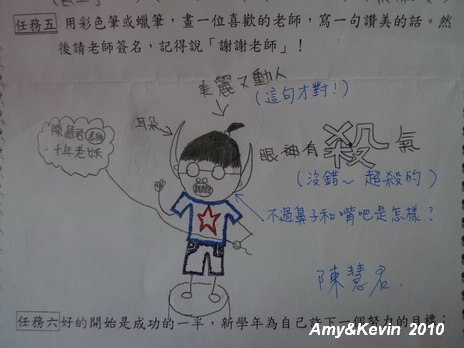 任務五 用彩色筆或蠟筆，畫一位喜歡的老師，寫一句讚美的話。然
後請老師簽名，記得說「謝謝老師」！
美麗又動人
(這句才對!)
耳朵
陳慧君老師
千年老妖
眼神有殺氣
(沒錯~超殺的)
不過鼻子和嘴吧是怎樣？
陳慧君.
任務六 好的開始是成功的一半，新學年為自己許下一個努力的目標；
Amy&Kevin 2010